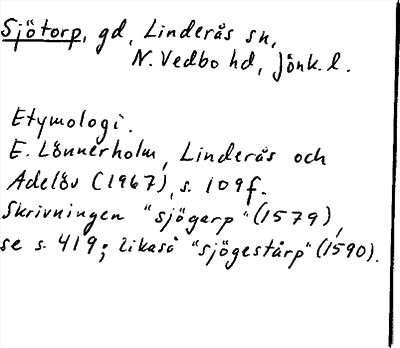 Sjötorp, gd, Linderås sn,
N. Vedbo hd, Jönk. l.
Etymologi.
E. Lönnerholm, Linderås och
Adelöv (1967), s. 109f.
Skrivningen "sjögarp" (1579),
se s. 419; likaså "sjögestårp" (1590).